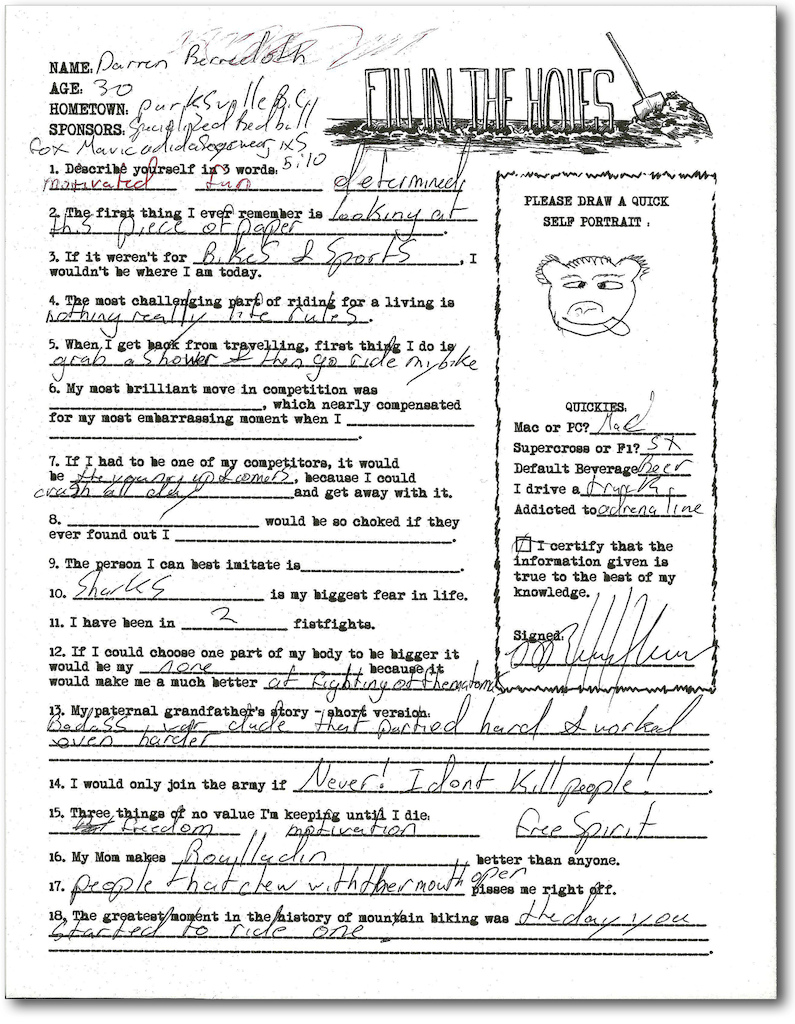 NAME: Darren Berrecloth
AGE: 30
HOMETOWN: parksville B.C
SPONSORS: Specialized Red bull
fox Mavic adidas eyewear IXS
5:10
FILL IN THE HOLES
1. Describe yourself in 3 words:
motivated fun determined
2. The first thing I ever remember is looking at
this piece of paper.
3. If it weren't for Bikes & Sports, I
wouldn't be where I am today.
4. The most challenging part of riding for a living is
nothing really life rules.
5. When I get back from travelling, first thing I do is
grab a shower & then go ride my bike
6. My most brilliant move in competition was
, which nearly compensated
for my most embarrassing moment when I
.
7. If I had to be one of my competitors, it would
be the young up & comers, because I could
crash all day and get away with it.
8. would be so choked if they
ever found out I .
9. The person I can best imitate is .
10. Sharks is my biggest fear in life.
11. I have been in 2 fistfights.
12. If I could choose one part of my body to be bigger it
would be my none because it
would make me a much better at fighting of the
13. My paternal grandfather's story - short version:
Badass war dude that partied hard & worked
even harder
.
14. I would only join the army if Never! I dont kill people! .
15. Three things of no value I'm keeping until I die:
freedom motivation free Spirit
16. My Mom makes better than anyone.
17. people that chew with ther mouth open pisses me right off.
18. The greatest moment in the history of mountain biking was the day you
started to ride one
.
PLEASE DRAW A QUICK
SELF PORTRAIT :
QUICKIES:
Mac or PC? Mac
Supercross or F1? SX
Default Beverage Beer
I drive a truck
Addicted to adrenaline
I certify that the
information given is
true to the best of my
knowledge.
Signed: